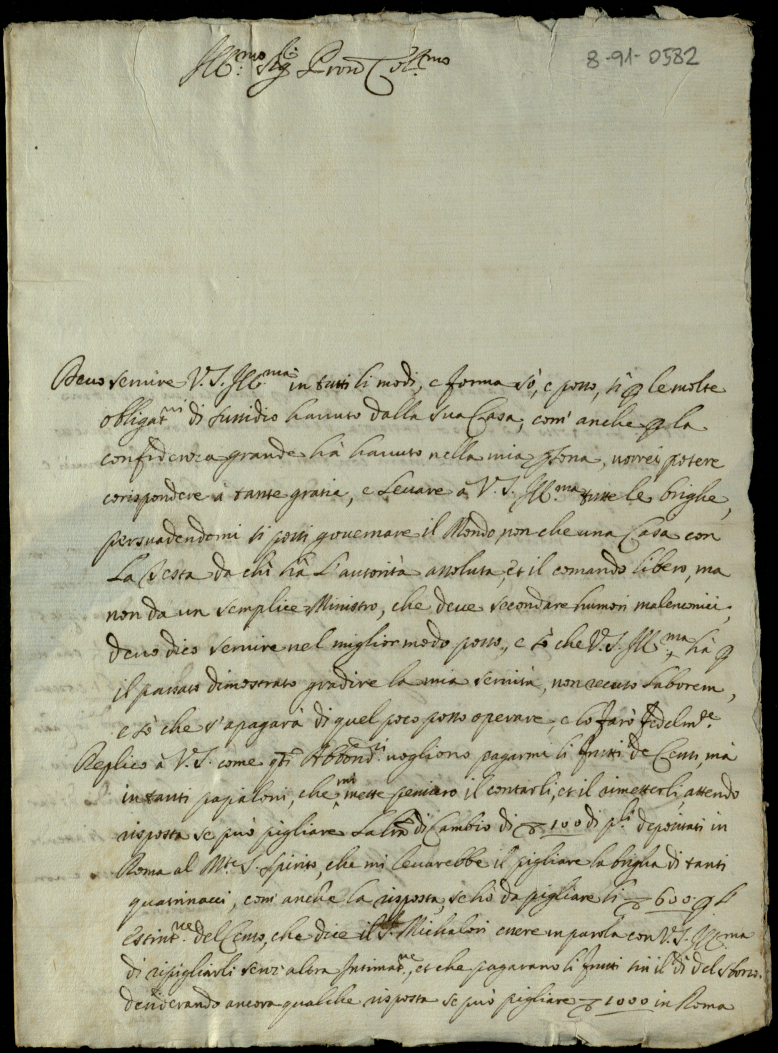 8-91-0582
Ill.mo Sig.r Pron Col.mo
Devo servire V.S. Ill.ma in tutti li modi, e forma sò, e posso, si p le molte
obligat.ni di sussidio havuto dalla sua Casa, com' anche p la
confidenza grande hà havuto nella mia psona, vorrei potere
corispondere à tante gratie, e levare à V.S. Ill.ma tutte le brighe,
persuadendomi si possi governare il Mondo non che una Casa con
La Testa da chi hà L'autorità assoluta, et il comando libero, ma
non da un semplice Ministro, che deve secondare humori malenconici,
devo dico servire nel miglior modo posso, e sò che V.S. Ill.ma hà p
il passato dimostrato gradire la mia servitù, non recuso Laborem,
e sò che s'apagarà di quel poco posso operare, e lo farò fedelm.te
Replico à V.S. come q.ti vogliono pagarmi li frutti de Censi, mà
in tanti papaloni, che mette pensiero il contarli, et il rimetterli, attendo
risposta se può pigliare La di Cambio di ∇ 100 di p.li depositati in
Roma al M.te S. Spirito, che mi levarebbe il pigliare la briga di tanti
quatrinacci, com' anche la risposta, se hò da pigliare li ∇ 600 p l'
estint.ne del Censo, che dice il S. Michalori essere in parola con V.S. Ill.ma
di ripigliarli senz' altra Intimat.ne, et che pagarano li frutti sin il dì del sborso.
desiderando ancora qualche risposta se può pigliare ∇ 1000 in Roma